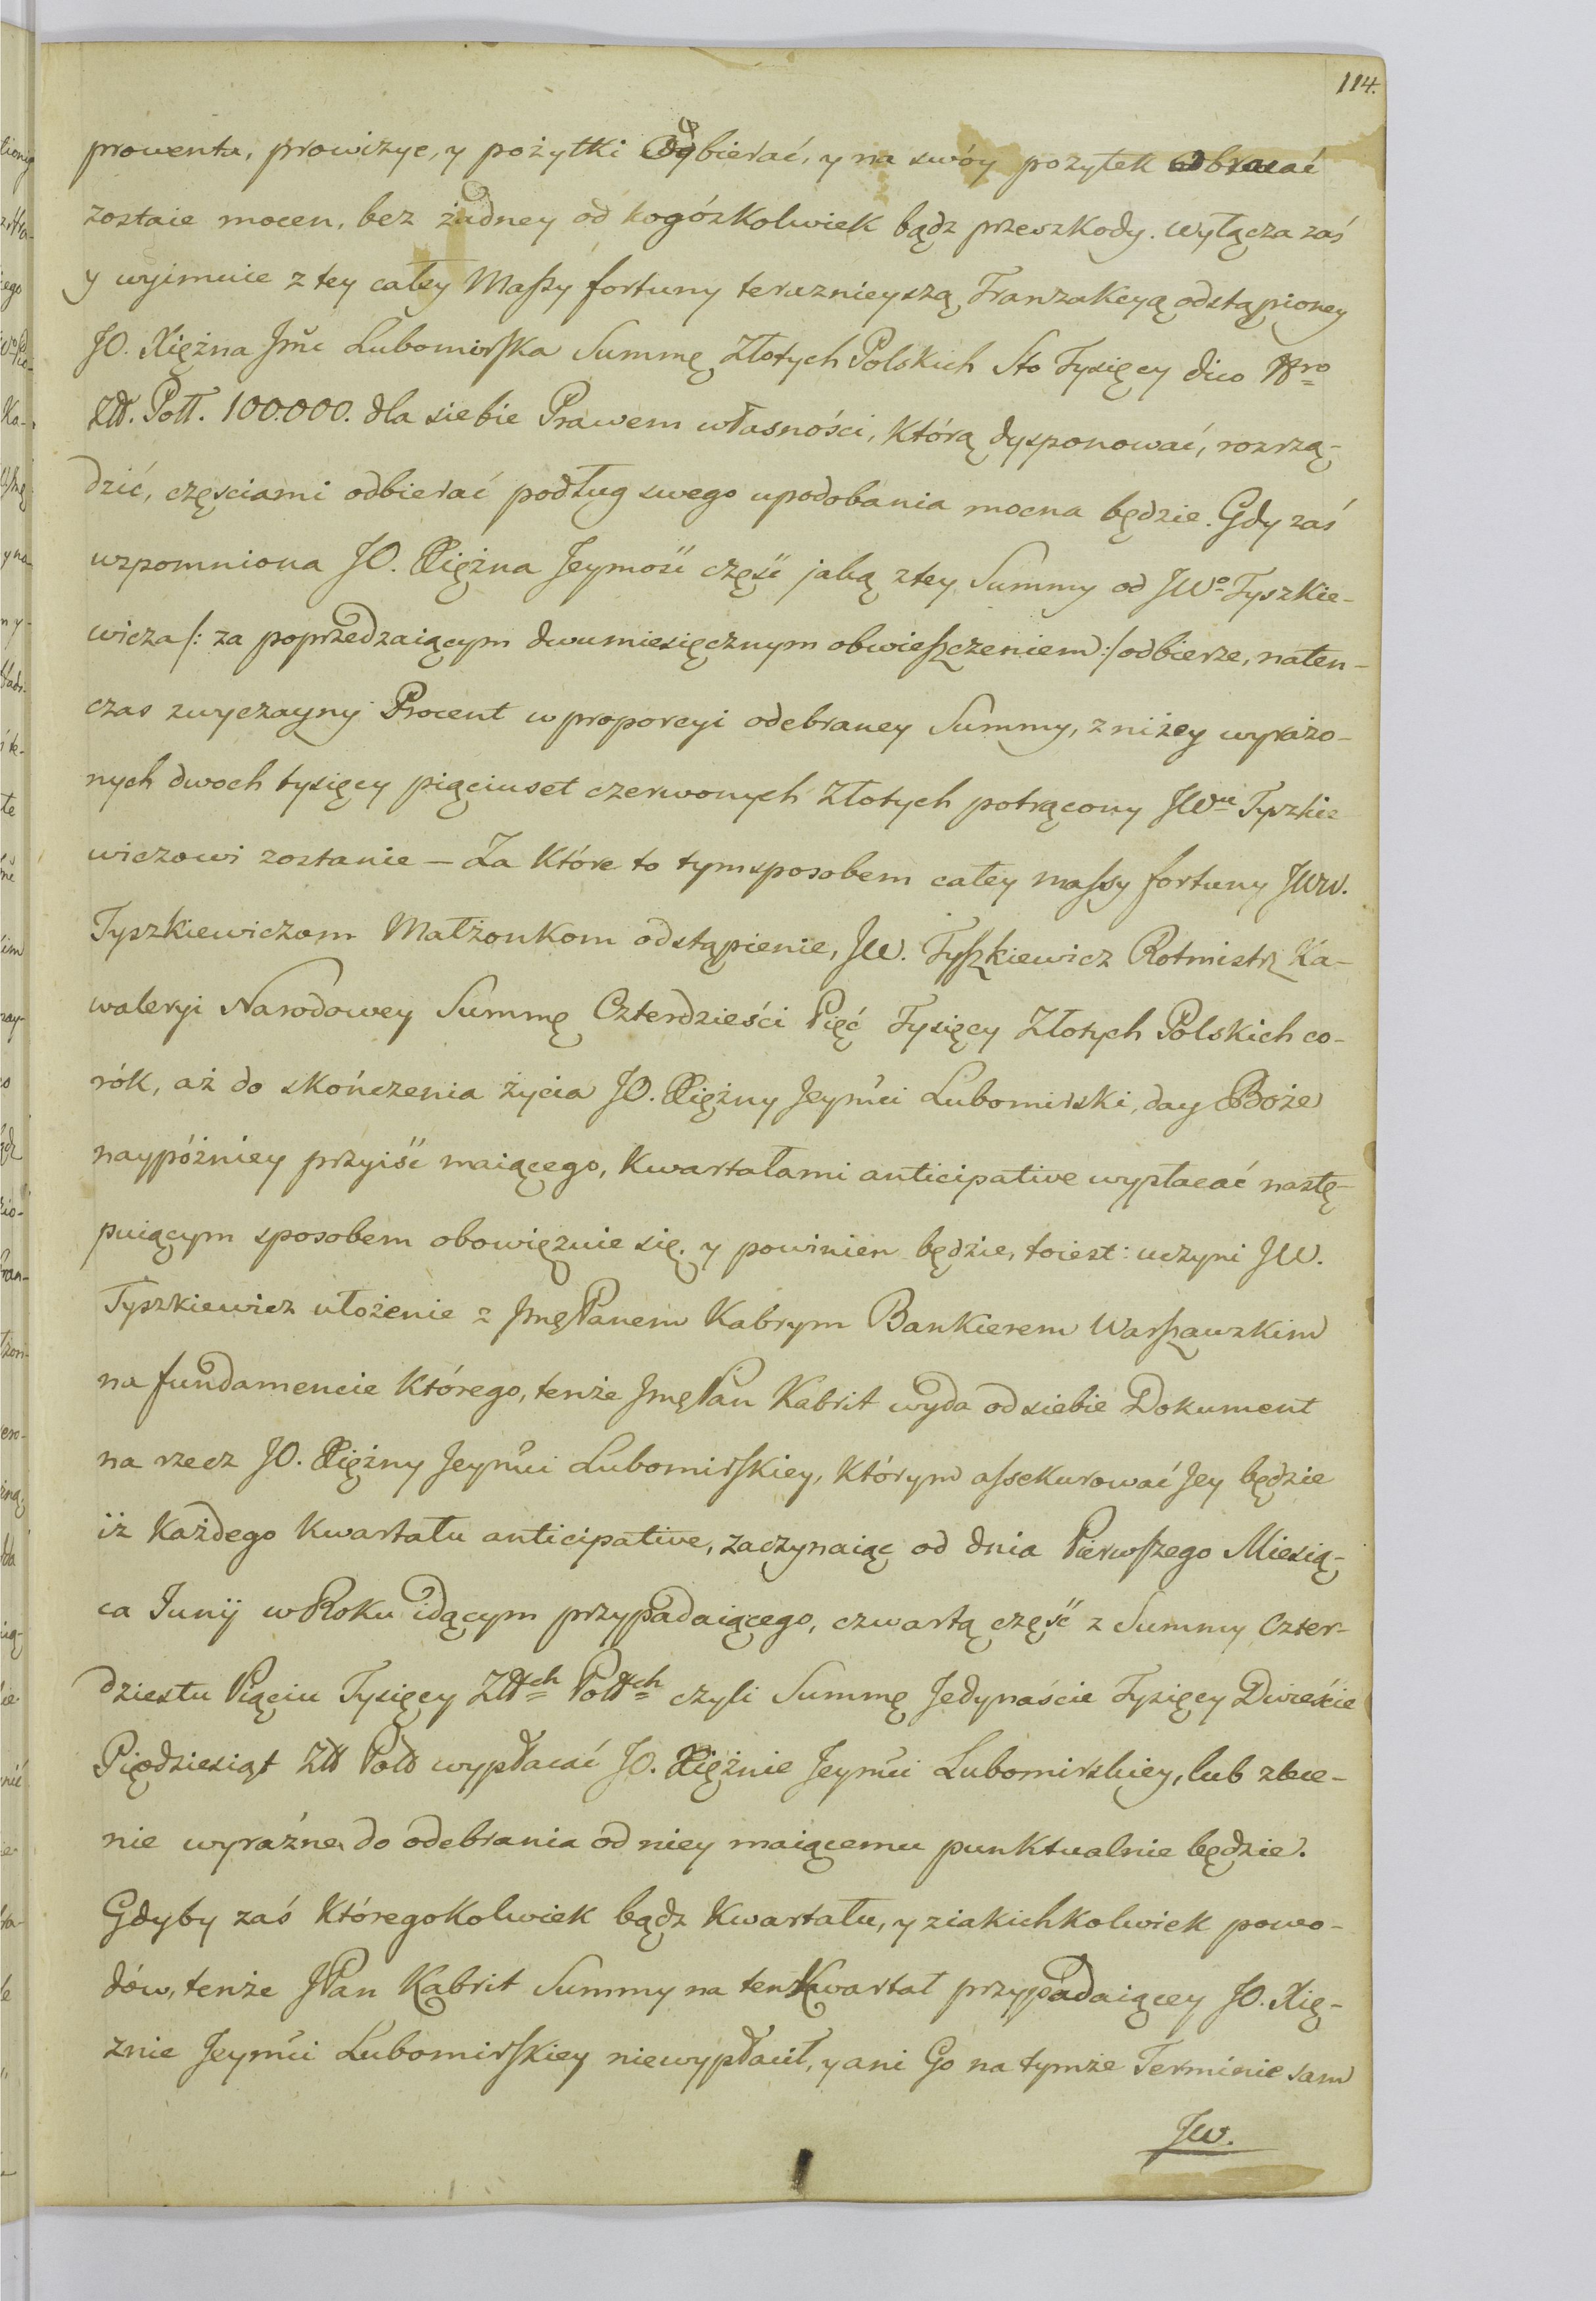 114.
prowenta, prowizye, y pożytki odbierać, y na swóy pożytek obracać
zostaie mocen, bez żadney od kogóżkolwiek bądz przeszkody. Wyłącza zaś
y wyimuie z tey całey Massy fortuny teraznieyszą Tranzakcyą odstąpioney
JO. Xiężna Jmć Lubomirska Summę Złotych Polskich Sto Tysięcy dico Nro
Złł. Poll. 100.000. dla siebie Prawem własności, którą dysponować, rozrzą-
dzić, częsciami odbierać podług swego upodobania mocna będzie. Gdy zaś
wzpomniona JO. Xiężna Jeymość część jaką z tey Summy od JWo Tyszkie-
wicza /: za poprzedzaiącym dwumiesięcznym obwieszczeniem :/ odbierze, naten-
czas zwyczayny Procent w proporcyi odebraney Summy, z niżey wyrażo-
nych dwoch tysięcy pięciuset czerwonych Złotych potrącony JWu Tyszkie
wiczowi zostanie — Za które to tym sposobem całey massy fortuny JWW.
Tyszkiewiczom Małżonkom odstąpienie, JW. Tyszkiewicz Rotmistrz Ka-
waleryi Narodowey Summę Czterdzieści Pięć Tysięcy Złotych Polskich co-
rók, aż do skończenia życia JO. Xiężny Jeymći Lubomirski, day Boże
naypóżniey przyiść maiącego, kwartałami anticipative wypłacać nastę-
puiącym sposobem obowięzuie się, y powinien będzie, toiest: uczyni JW.
Tyszkiewicz ułożenie z Jmę Panem Kabrym Bankierem Warszawzkim
na fundamencie którego, tenże Jmę Pan Kabrit wyda od siebie Dokument
na rzecz JO. Xiężny Jeymći Lubomirskiey, którym assekurować Jey będzie
iż każdego kwartału anticipative, zaczynaiąc od dnia Pierwszego Miesią-
ca Junij w Roku idącym przypadaiącego, czwartą część z Summy Czter-
dziestu Pięciu Tysięcy Złłch Pollch czyli Summę Jedynaście Tysięcy Dwieście
Pięдziesiąt Złł Poll wypłacać JO. Xiężnie Jeymći Lubomirskiey, lub zlece-
nie wyraźne do odebrania od niey maiącemu punktualnie będzie.
Gdyby zaś któregokolwiek bądz kwartału, y z iakichkolwiek powo-
dów, tenże JPan Kabrit Summy na ten kwartał przypadaiącey JO. Xię-
żnie Jeymći Lubomirskiey niewypłacił, y ani Go na tymże Terminie sam
JW.